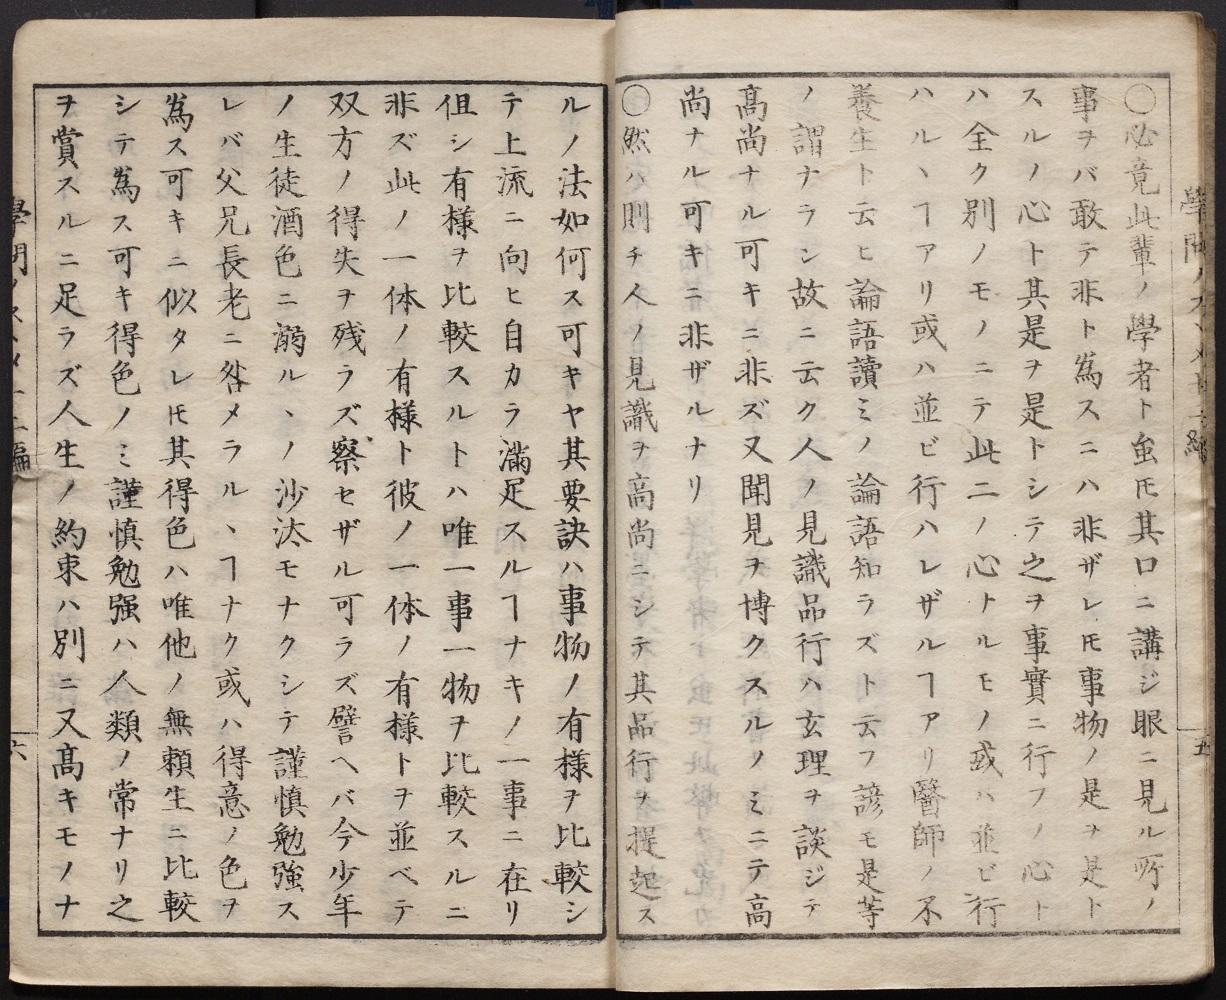 〇必竟此輩ノ學者ト虽𪜈其口ニ講ジ眼ニ見ル所ノ
事ヲバ敢テ非ト為スニハ非ザレ𪜈事物ノ是ヲ是ト
スルノ心ト其是ヲ是トシテ之ヲ事實ニ行フノ心ト
ハ全ク別ノモノニテ此二ノ心トルモノ或ハ並ビ行
ハルヽヿアリ或ハ並ビ行ハレザルヿアリ醫師ノ不
養生ト云ヒ論語讀ミノ論語知ラズト云フ諺モ是等
ノ謂ナラン故ニ云ク人ノ見識品行ハ玄理ヲ談ジテ
髙尚ナル可キニ非ズ又聞見ヲ博クスルノミニテ高
尚ナル可キニ非ザルナリ
〇然ハ則チ人ノ見識ヲ高尚ニシテ其品行ヲ提起ス
學問ノスヽメ十二編
五
ルノ法如何ス可キヤ其要訣ハ事物ノ有様ヲ比較シ
テ上流ニ向ヒ自カラ滿足スルヿナキノ一事ニ在リ
但シ有様ヲ比較スルトハ唯一事一物ヲ比較スルニ
非ズ此ノ一体ノ有様ト彼ノ一体ノ有様トヲ並ベテ
双方ノ得失ヲ残ラズ察セザル可ラズ譬ヘバ今少年
ノ生徒酒色ニ溺ルヽノ沙汰モナクシテ謹慎勉強ス
レバ父兄長老ニ咎メラルヽヿナク或ハ得意ノ色ヲ
為ス可キニ似タレ𪜈其得色ハ唯他ノ無頼生ニ比較
シテ為ス可キ得色ノミ謹慎勉強ハ人類ノ常ナリ之
ヲ賞スルニ足ラズ人生ノ約束ハ別ニ又髙キモノナ
學問ノスヽメ十二編
六